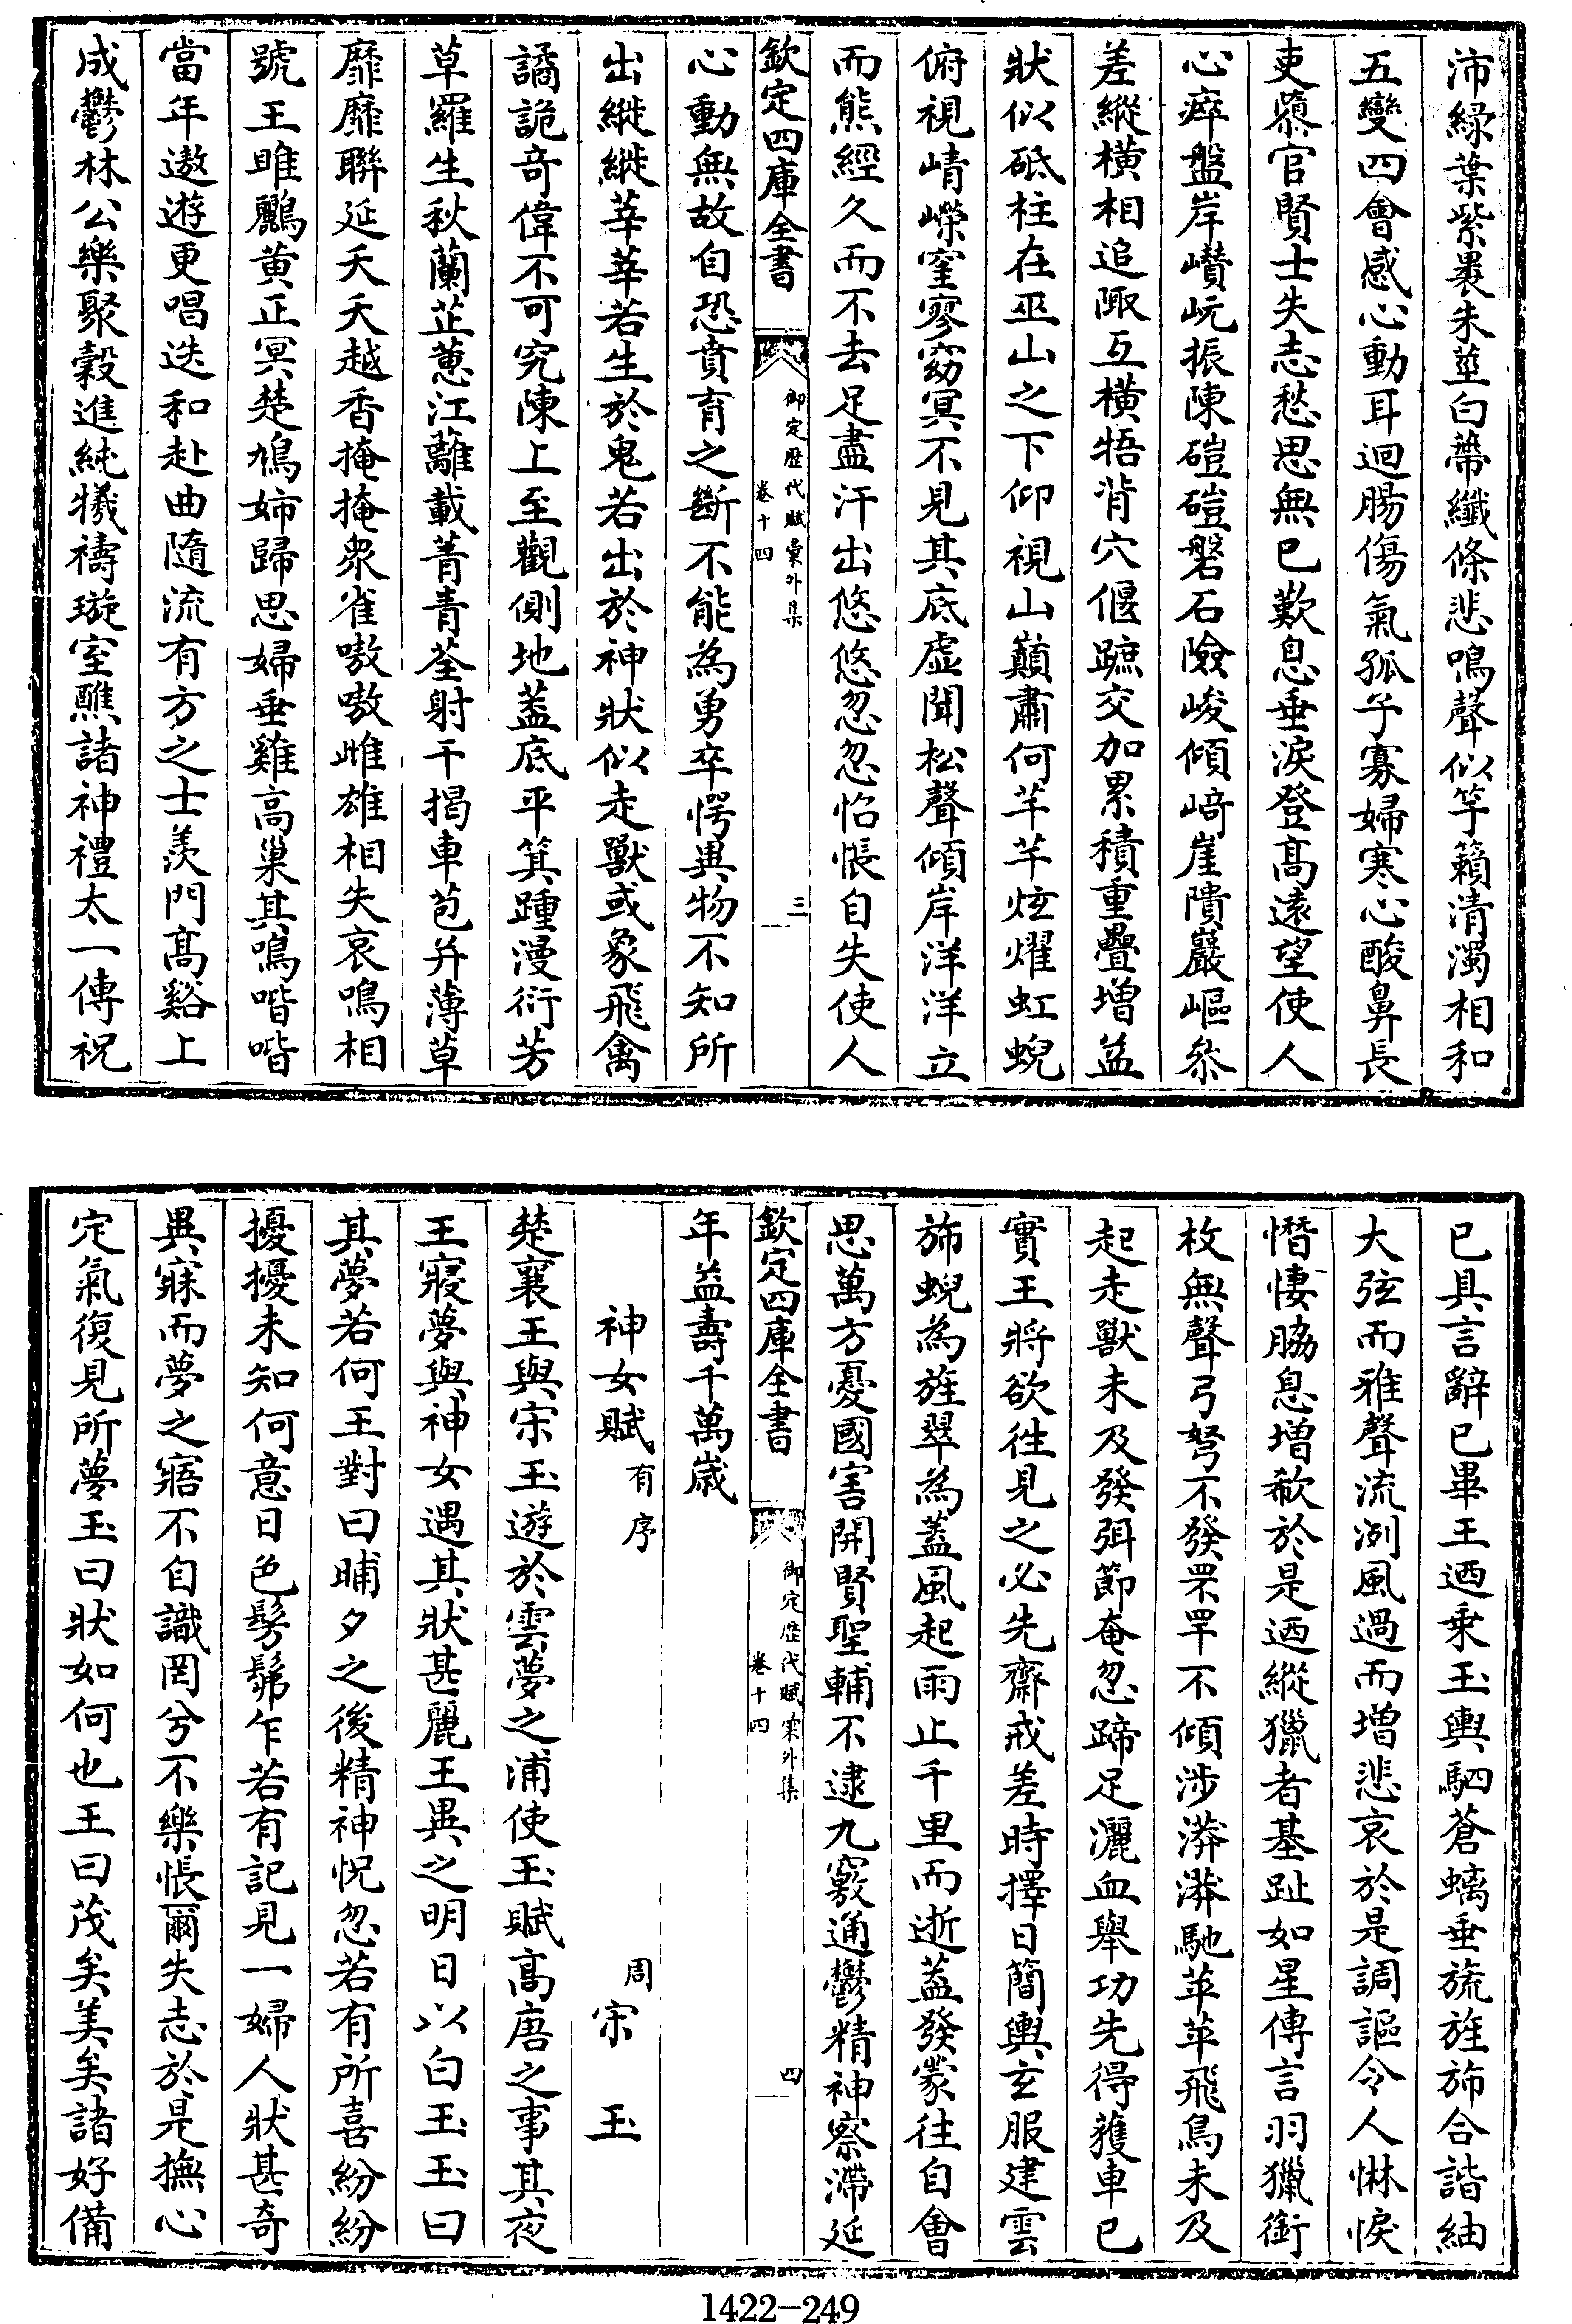 沛緑葉紫裹朱莖白蔕纖條悲鳴聲似竽籟清濁相和
五變四會感心動耳迴腸傷氣孤子寡婦寒心酸鼻長
吏隳官賢士失志愁思無已歎息垂淚登髙遠望使人
心瘁盤岸巑岏振陳磑磑磐石險峻傾﨑崖隤巖嶇參
差縱横相追陬互横牾背穴偃蹠交加累積重疊増益
狀似砥柱在巫山之下仰視山巔肅何芊芊炫燿虹蜺
俯視崝嶸窐寥窈冥不見其底虚聞松聲傾岸洋洋立
而熊經久而不去足盡汗出悠悠忽忽怊悵自失使人
欽定四庫全書
御定歴代賦彙外集
卷十四
三
心動無故自恐賁育之斷不能為勇卒愕異物不知所
出縰縰莘莘若生於鬼若出於神狀似走獸或象飛禽
譎詭竒偉不可究陳上至觀側地蓋底平箕踵漫衍芳
草羅生秋蘭茝蕙江蘺載菁青荃射干揭車苞并薄草
靡靡聯延夭夭越香掩掩衆雀嗷嗷雌雄相失哀鳴相
號王雎鸝黄正冥楚鳩姊歸思婦垂雞高巢其鳴喈喈
當年遨遊更唱迭和赴曲隨流有方之士羨門髙谿上
成鬱林公樂聚穀進純犧禱璇室醮諸神禮太一傳祝
已具言辭已畢王迺乘玉輿駟蒼螭垂旒旌斾合諧紬
大弦而雅聲流洌風過而増悲哀於是調謳令人惏悷
憯悽脇息増欷於是迺縱獵者基趾如星傳言羽獵銜
枚無聲弓弩不發罘罕不傾涉漭漭馳苹苹飛鳥未及
起走獸未及發弭節奄忽蹄足灑血舉功先得獲車已
實王將欲徃見之必先齋戒差時擇日簡輿玄服建雲
斾蜺為旌翠為蓋風起雨止千里而逝蓋發䝉往自會
思萬方憂國害開賢聖輔不逮九竅通鬱精神察滯延
欽定四庫全書
御定歴代賦彙外集
卷十四
四
年益壽千萬嵗
神女賦有序
周宋玉
楚襄王與宋玉遊於雲夢之浦使玉賦高唐之事其夜
王寢夢與神女遇其狀甚麗王異之明日以白玉玉曰
其夢若何王對曰晡夕之後精神怳忽若有所喜紛紛
擾擾未知何意目色髣髴乍若有記見一婦人狀甚奇
異寐而夢之寤不自識罔兮不樂悵爾失志於是撫心
定氣復見所夢玉曰狀如何也王曰茂矣美矣諸好備
1422-249